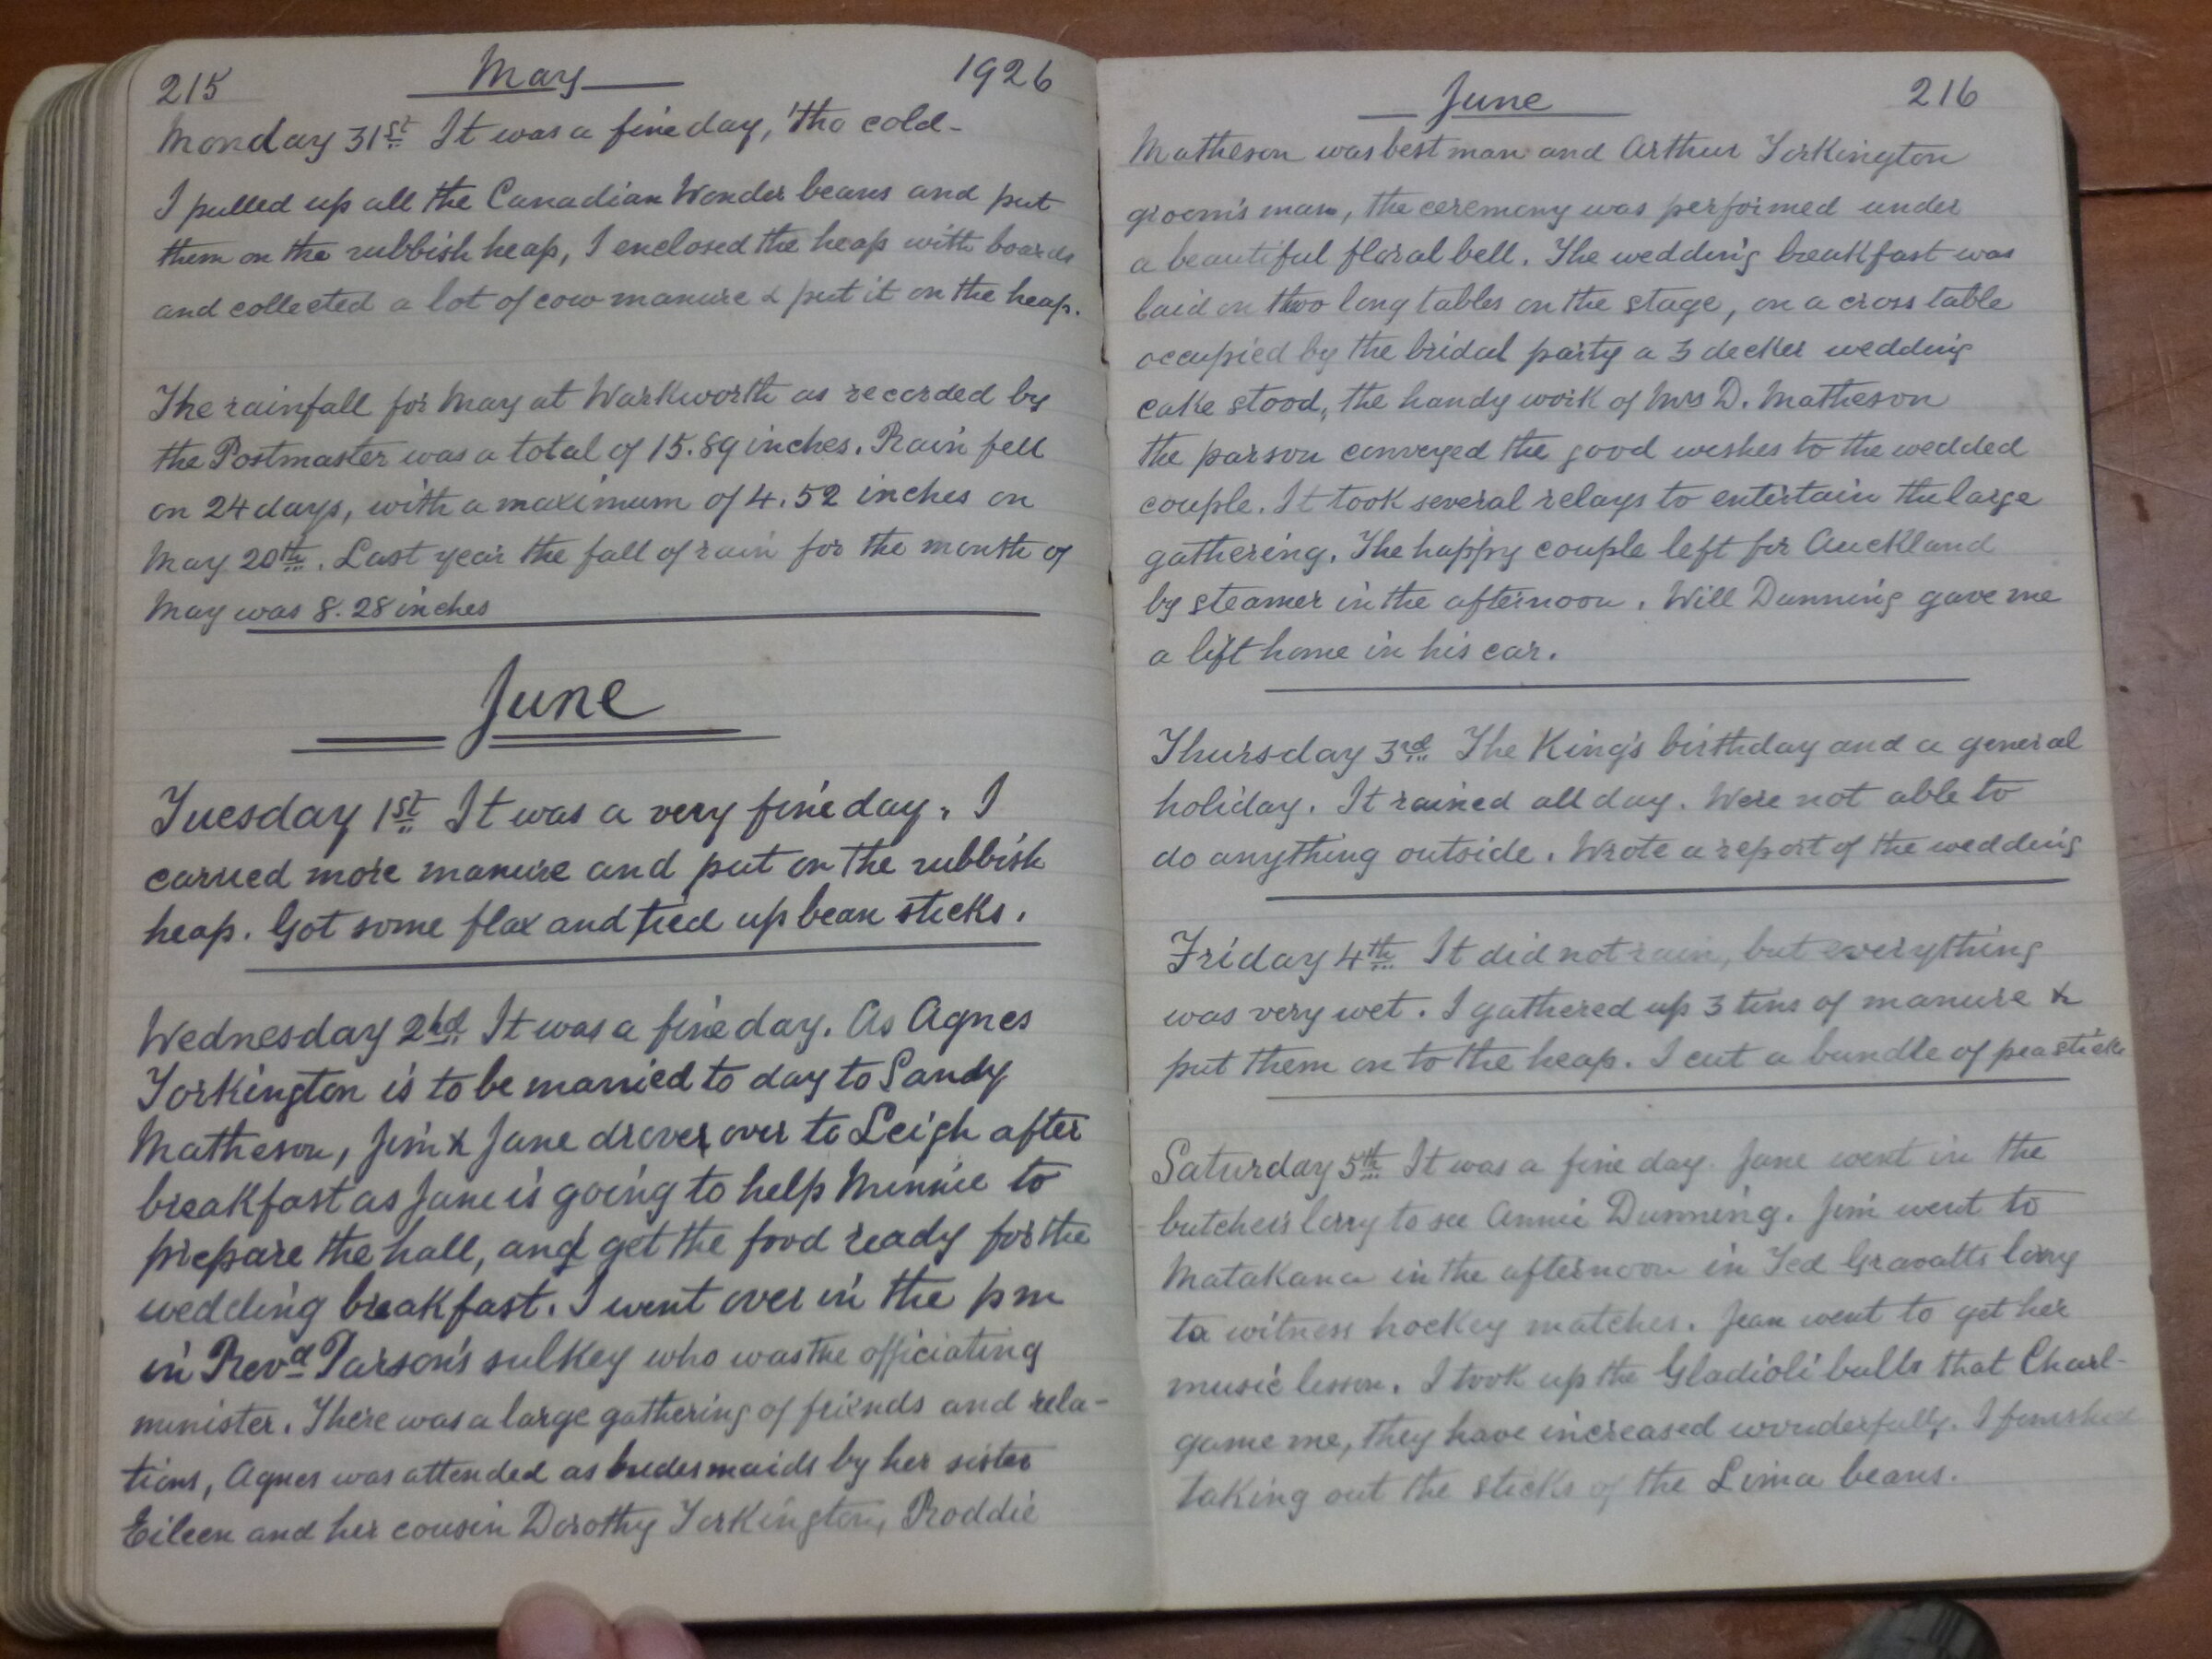 215 May 1926
Monday 31st It was a fine day, 'tho cold-
I pulled up all the Canadian Wonder beans and put
them on the rubbish heap, I enclosed the heap with boards
and collected a lot of cow manure & put it on the heap.
The rainfall for May at Warkworth as recorded by
the Postmaster was a total of 15.89 inches. Rain fell
on 24 days, with a maximum of 4.52 inches on
May 20th. Last year the fall of rain for the month of
May was 8.28 inches
June
Tuesday 1st It was a very fine day. I
carried more manure and put on the rubbish
heap. Got some flax and tied up bean sticks.
Wednesday 2nd It was a fine day. As Agnes
Torkington is to be married to day to Sandy
Matheson, Jim & Jane drover over to Leigh after
breakfast as Jane is going to help Minnie to
prepare the hall, and get the food ready for the
wedding breakfast. I went over in the pm
in Revd Parson's sulkey who was the officiating
minister. There was a large gathering of friends and rela-
tions, Agnes was attended as bridesmaids by her sister
Eileen and her cousin Dorothy Torkington, Roddie
June 216
Matheson was best man and Arthur Torkington
groom's man, the ceremony was performed under
a beautiful floral bell. The wedding breakfast was
laid on two long tables on the stage, on a cross table
occupied by the bridal party a 3 decker wedding
cake stood, the handy work of Mrs D. Matheson
the parson conveyed the good wishes to the wedded
couple. It took several relays to entertain the large
gathering. The happy couple left for Auckland
by steamer in the afternoon. Will Dunning gave me
a lift home in his car.
Thursday 3rd The King's birthday and a general
holiday. It rained all day. Were not able to
do anything outside. Wrote a report of the wedding
Friday 4th It did not rain, but everything
was very wet. I gathered up 3 tins of manure &
put them on to the heap. I cut a bundle of pea sticks
Saturday 5th It was a fine day. Jane went in the
butchers lorry to see Annie Dunning. Jim went to
Matakana in the afternoon in Ted Gravatts lorry
to witness hockey matches. Jean went to get her
music lesson. I took up the Gladioli bulbs that Charl-
game me, they have increased wonderfully. I finished
taking out the sticks of the Lima beans.